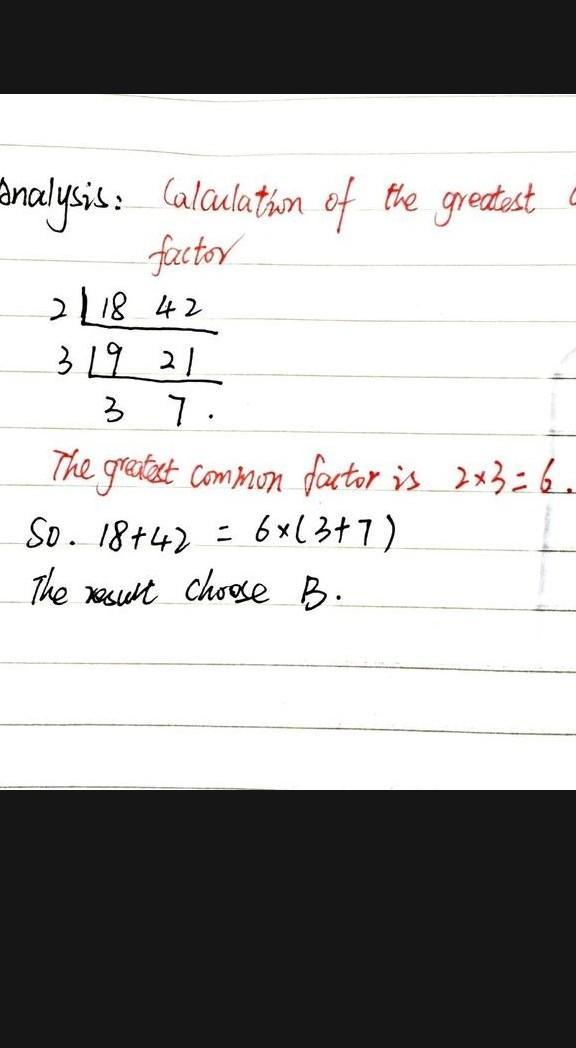 Analysis: Calculation of the greatest
factor
2 18 42
3 9 21
3 7.
The greatest common factor is 2×3=6.
So. 18+42 = 6×(3+7)
The result choose B.